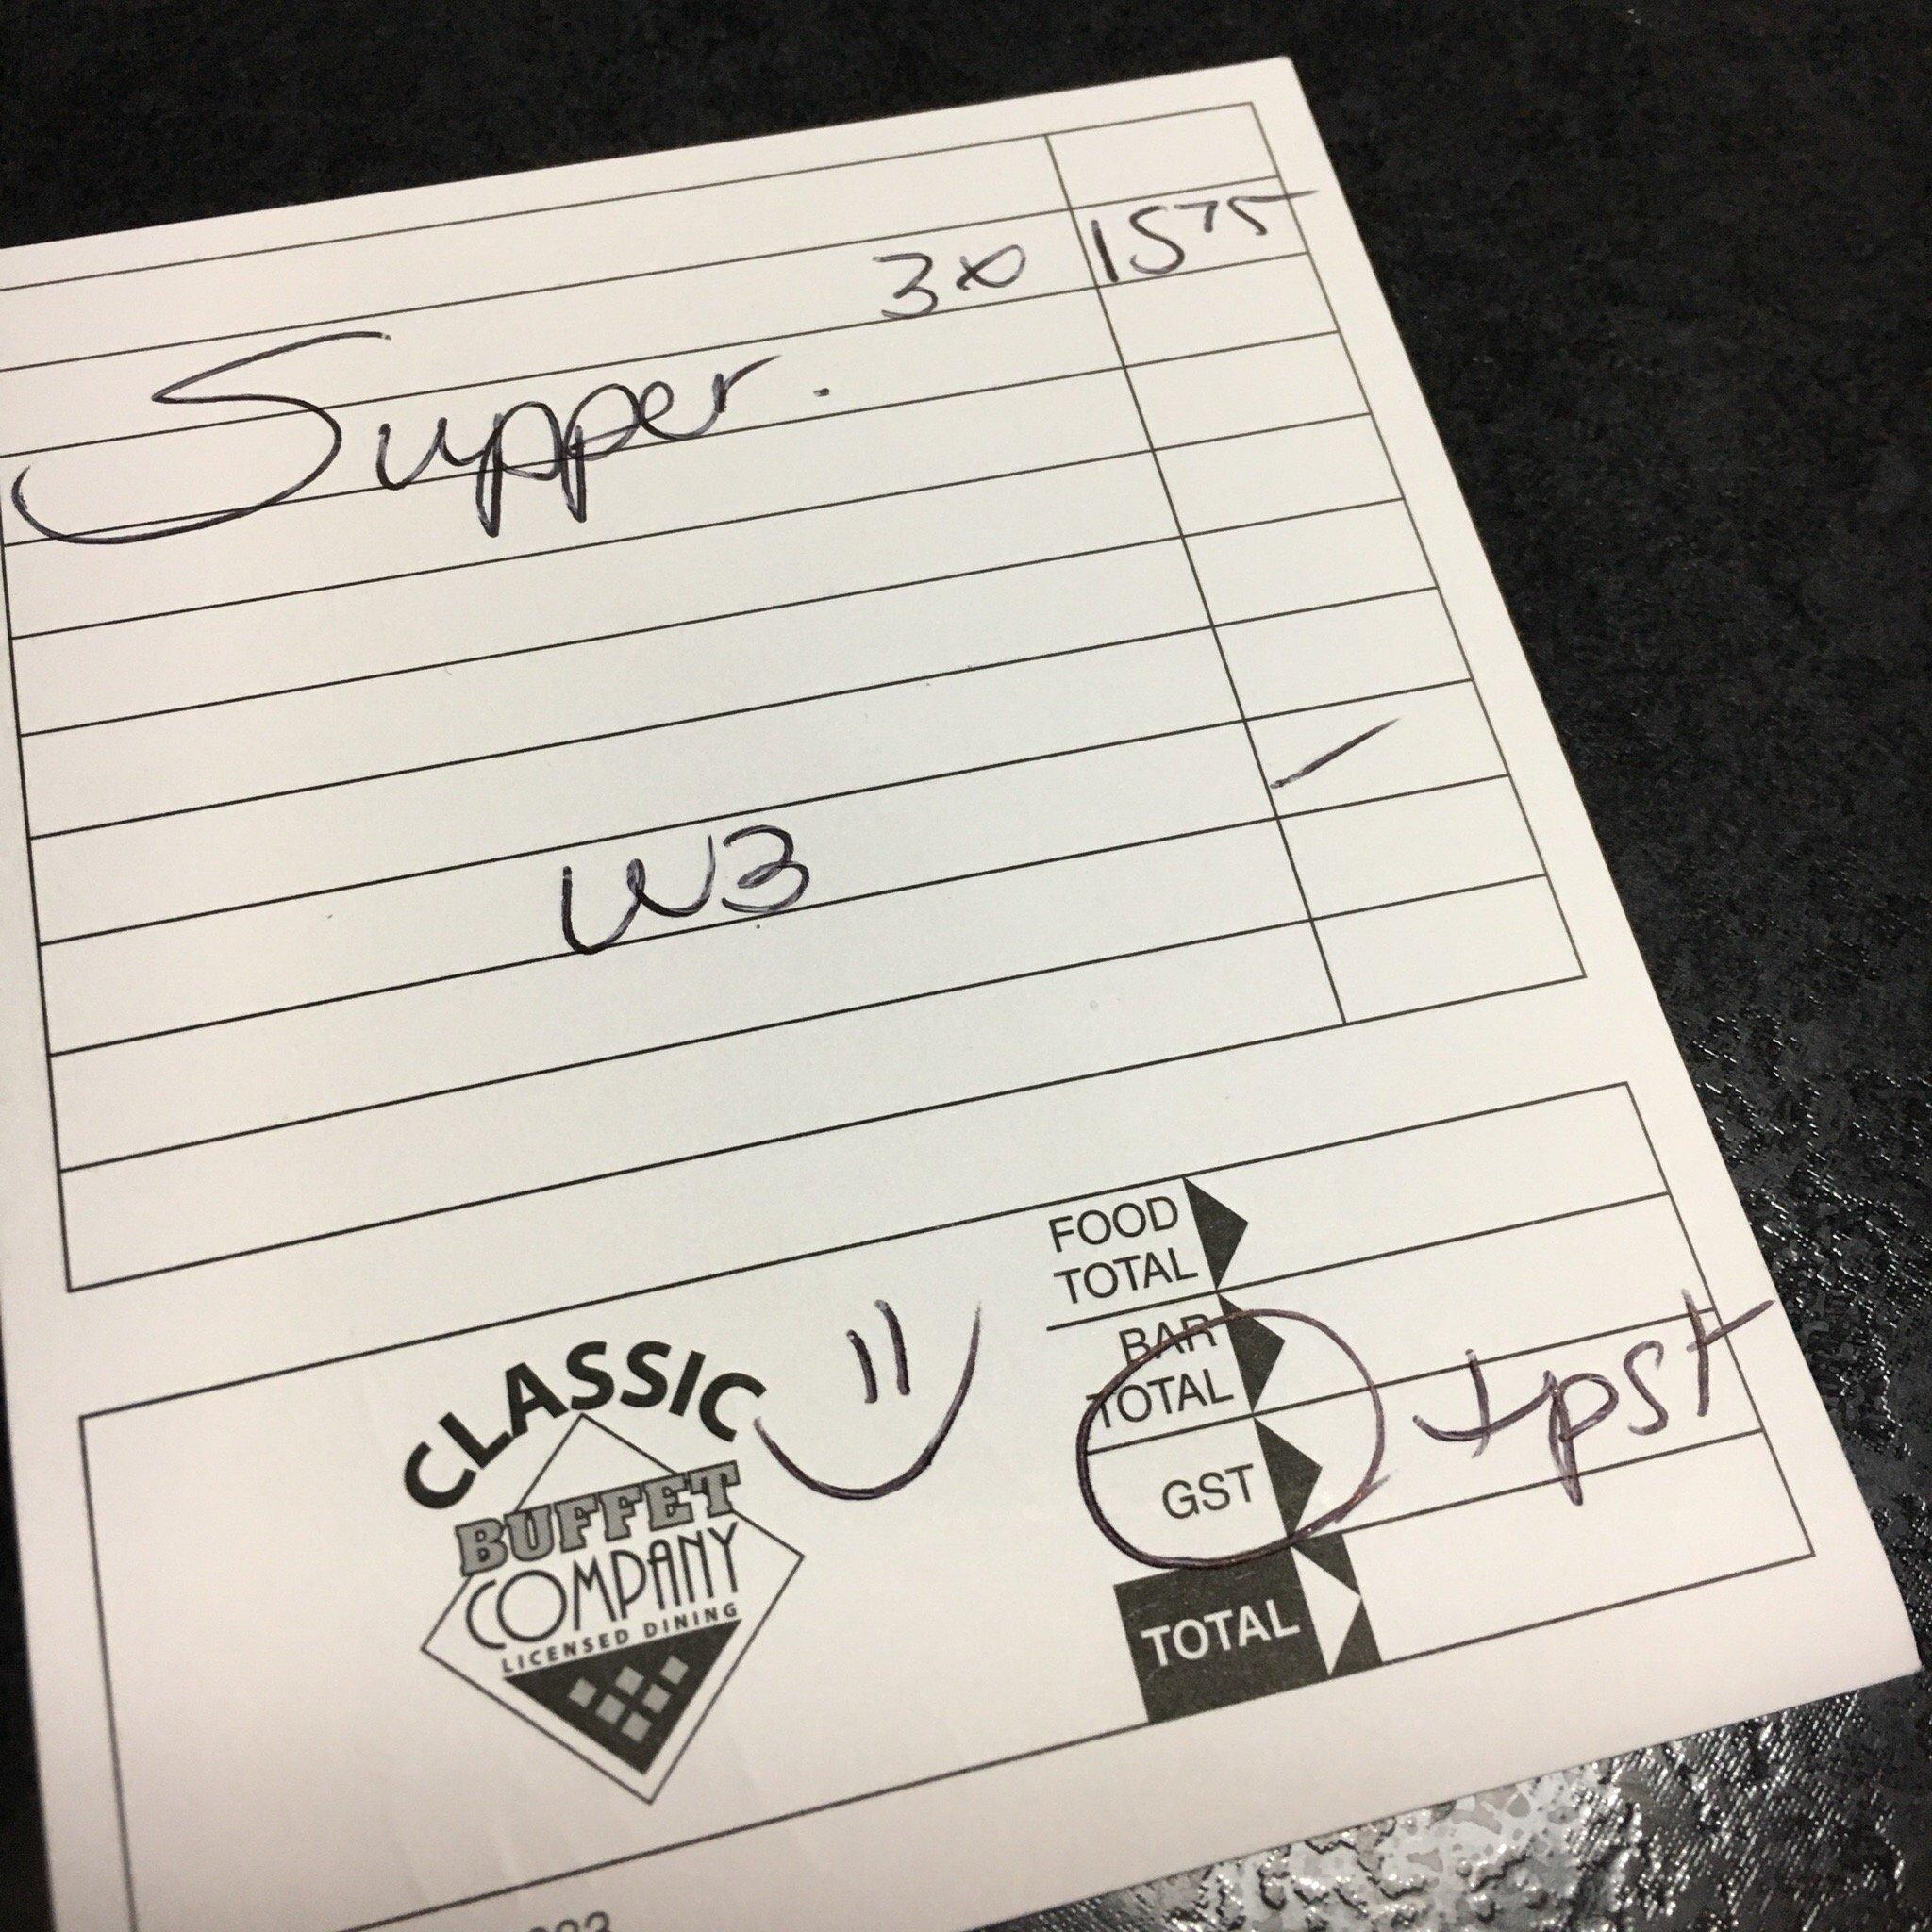 3x 15 75
Supper.
W3
FOOD
TOTAL
BAR
TOTAL
GST
+pst
TOTAL
CLASSIC
BUFFET
COMPANY
LICENSED DINING